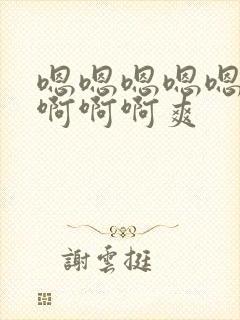 嗯嗯嗯嗯嗯
啊啊啊爽
謝雲挺